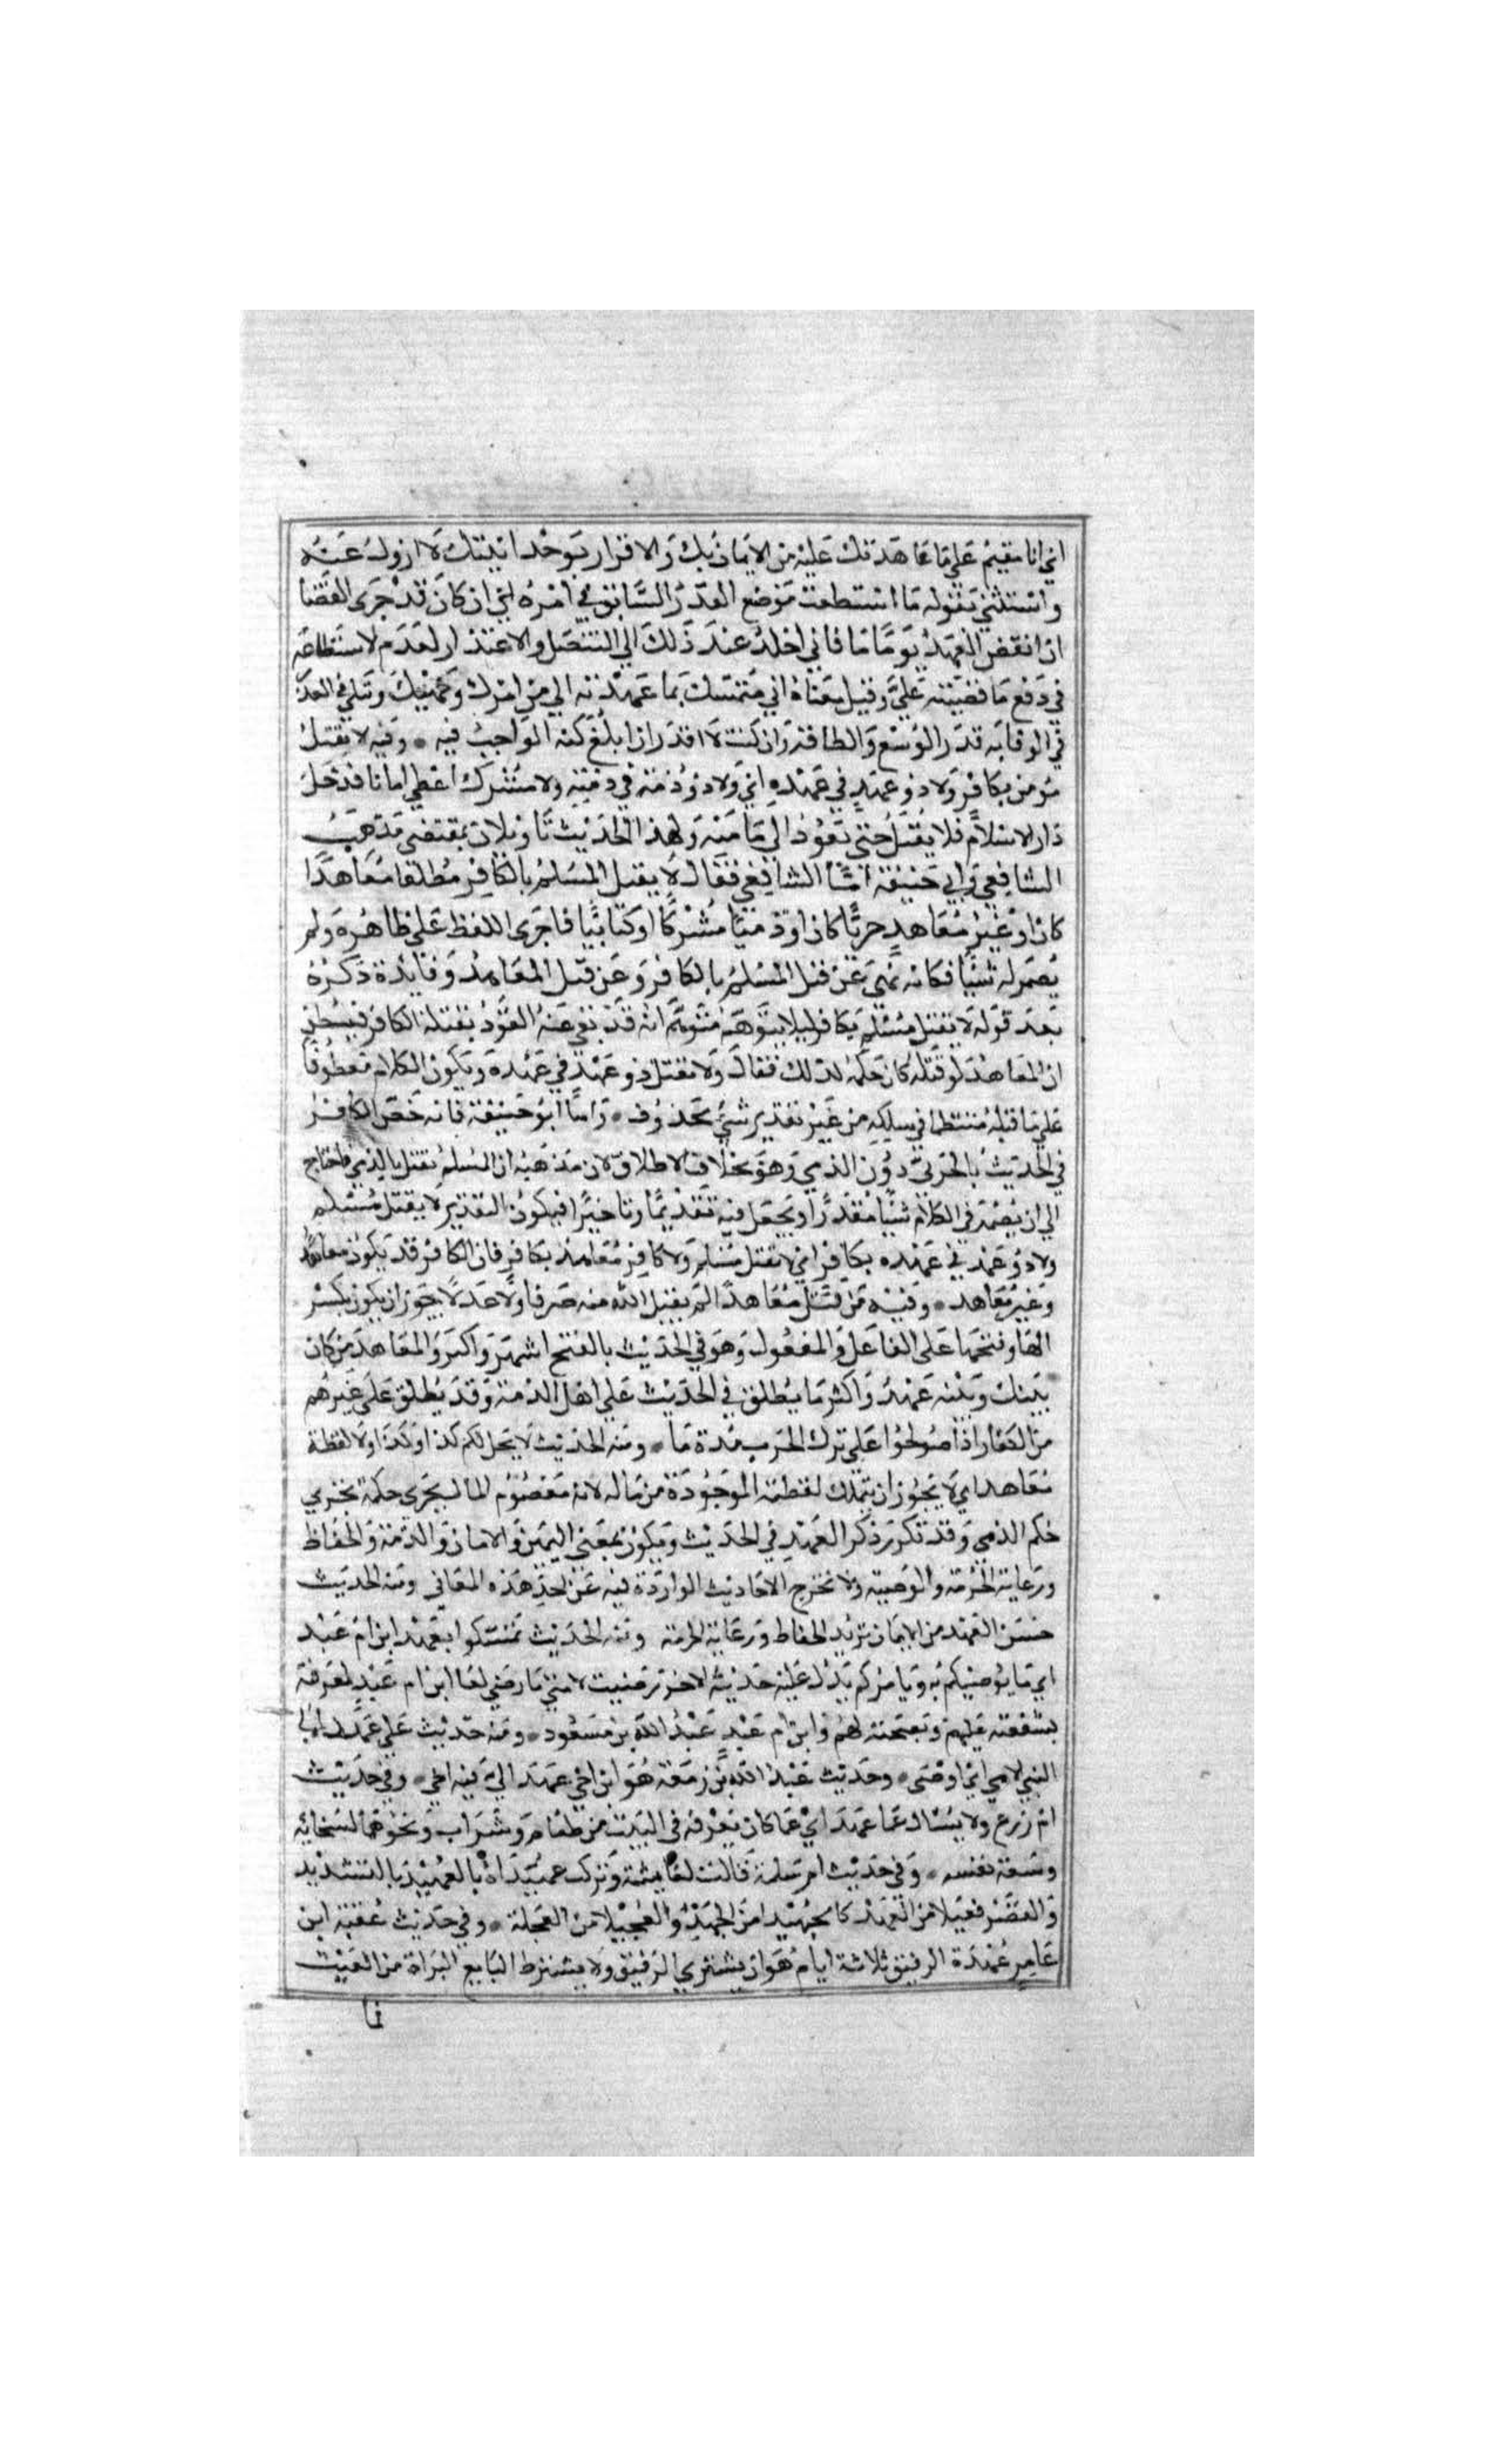 اي انا مقيم على ما عاهدتك عليه من الايمان بك والاقرار بوحدانيتك لا ازول عنه
واستثنى بقوله ما استطعت موضع القدر السابق في امره اي ان كان قد جرى القضا
ان انقض العهد يوما ما فاني اخلد عند ذلك الى التنصل والاعتذار لعدم لاستطاعه
في دفع ما قضيته علي وقيل معناه اني متمسك بما عهدته الي من امرك ونهيك ومبلي العذر
في الوفا به قدر الوسع والطاقة وان كنت لا اقدر ان ابلغ كنه الواجب فيه • وفيه لا يقتل
مؤمن بكافر ولا ذو عهد في عهده اي ولا ذو ذمة في ذمته ولا مشرك اعطي امانا فدخل
دار الاسلام فلا يقتل حتى يعود الى مامنه ولهذا الحديث تاويلان بمقتضى مذهب
الشافعي وابي حنيفة اما الشافعي فقال لا يقتل المسلم بالكافر مطلقا معاهدا
كان او غير معاهد حربيا كان او ذميا مشركا او كتابيا فاجرى اللفظ على ظاهره ولم
يضمر له شيا فكانه نهى عن قتل المسلم بالكافر وعن قتل المعاهد وفايدة ذكره
بعد قوله لا يقتل مسلم بكافر ليلا يتوهم متوهم انه قد نفي عنه القود بقتله الكافر فيظن
ان المعاهد لو قتله كان حكمه لذلك فقال ولا يقتل ذو عهد في عهده ويكون الكلام معطوفا
على ما قبله منتظما في سلكه من غير تقدير شي محذوف • واما ابو حنيفة فانه خص الكافر
في الحديث بالحربي دون الذمي وهو بخلاف الاطلاق لان مذهبه ان المسلم يقتل بالذمي فاحتاج
الى ان يضمر في الكلام شيا مقدرا ويجعل فيه تقديما وتاخيرا فيكون التقدير لا يقتل مسلم
ولا ذو عهد في عهده بكافر اي لا يقتل مسلم ولا كافر معاهد بكافر فان الكافر قد يكون معاهدا
وغير معاهد • وفيه من قتل معاهدا لم يقبل الله منه صرفا ولا عدلا يجوز ان يكون بكسر
الها وفتحها على الفاعل والمفعول وهو في الحديث بالفتح اشهر واكثر والمعاهد من كان
بينك وبينه عهد واكثر ما يطلق في الحديث على اهل الذمة وقد يطلق على غيرهم
من الكفار اذا صولحوا على ترك الحرب مدة ما • ومنه الحديث لا يحل لكم كذا وكذا ولا لقطة
معاهد اي لا يجوز ان يتملك لقطته الموجودة من ماله لانه معصوم المال يجرى حكمه مجرى
حكم الذمي وقد تكرر ذكر العهد في الحديث ويكون بمعنى اليمين والامان والذمة والحفاظ
ورعاية الحرمة والوصية ولا تخرج الاحاديث الواردة فيه عن احد هذه المعاني ومنه الحديث
حسن العهد من الايمان يريد الحفاظ ورعاية الحرمة ومنه الحديث تمسكوا بعهد ابن ام عبد
اي ما يوصيكم به ويامركم يدل عليه حديثه الاخر رضيت لامتي ما رضي لها ابن ام عبد لمعرفة
بشفقته عليهم ونصيحته لهم وابن ام عبد عبد الله بن مسعود • ومنه حديث علي عهد الي
النبي الامي اي اوصى • وحديث عبد الله بن زمعة هو ابن اخي عهد الي فيه اخي • وفي حديث
ام زرع ولا يسال عما عهد اي عما كان يعرفه في البيت من طعام وشراب ونحوهما لسخائه
وسعة نفسه • وفي حديث ام سلمة قالت لعائشة وتركت عهيداه بالعهيد بالتشديد
والقصر فعيلا من العهد كالجهيدا من الجهد والعجيلا من العجلة • وفي حديث عقبة ابن
عامر عهدة الرقيق ثلاثة ايام هو ان يشتري الرقيق ولا يشترط البايع البراة من العيب
فما